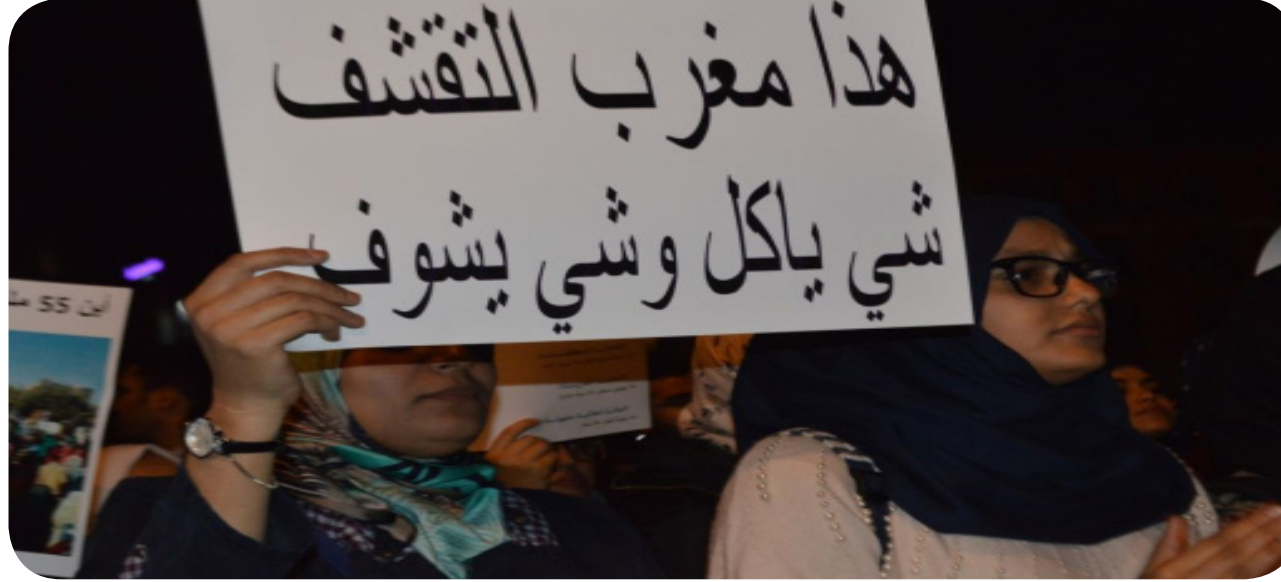 هذا مغرب التقشف
شي ياكل وشي يشوف
أين 55